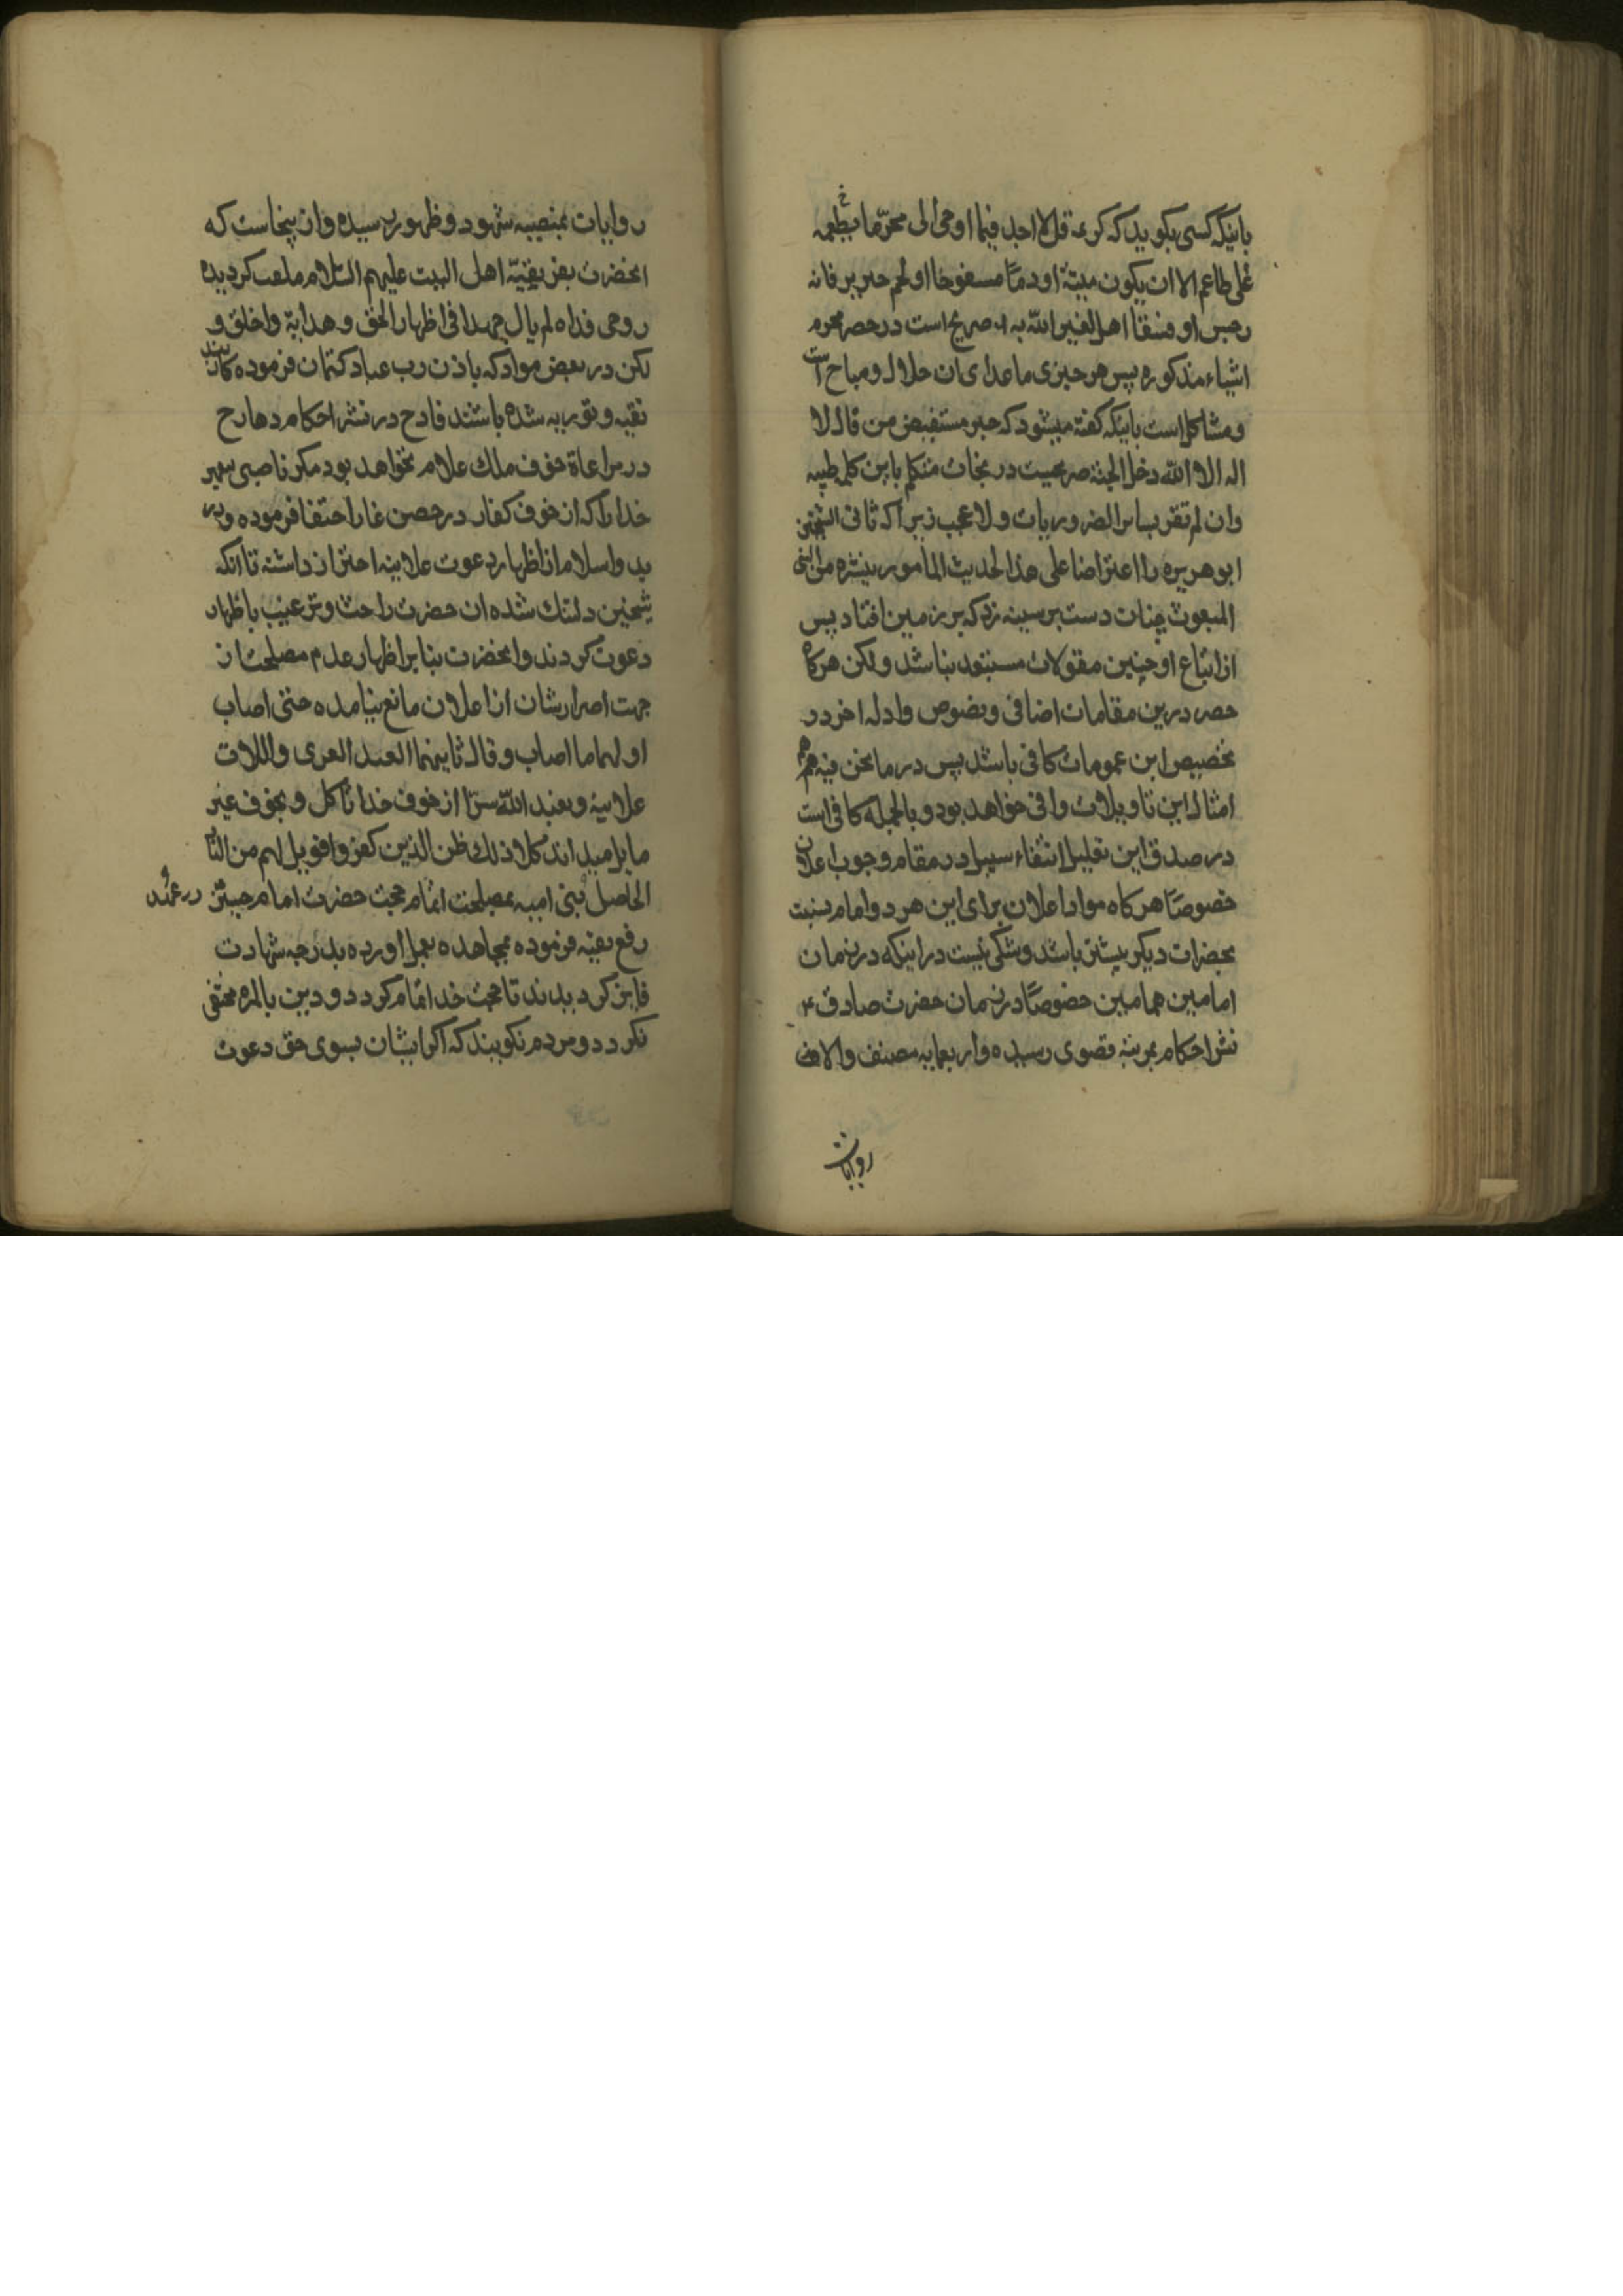 باینکه کسی بکوید که کریمة قل لا اجد فیما اوحی الی محرّما یطعمه
علی طاعم الا ان یکون میتة او دمًا مسفوحا او لحم خنزیر فانه
رجس او فسقا اهل لغیر الله به صریح است در حصر محرم
اشیاء مذکوره پس هر چیزی ماعدای ان حلال و مباح است
و مشاکل است باینکه کفته میشود که خبر مستفیض من قال لا
اله الا الله دخل الجنة صریحیست در نجات متکلم باین کلمه طیبه
وان لم تقر بسایر الضروریات ولا عجب زیرا که ثانی الشیخین
ابو هریره را اعتراضا علی هذا الحدیث المأمور بنشره من النبی
المبعوث چنان دست بر سینه زد که بر زمین افتاد پس
از اتباع او چنین مقولات مستبعد نباشد ولکن هرکاه
حصر درین مقامات اضافی و نصوص و ادله اخر در
تخصیص این عمومات کافی باشد پس در ما نحن فیه هم
امثال این تاویلات وافی خواهد بود و بالجمله کافی است
در صدق این تعلیل انتفاء سبیل در مقام وجوب اعلان
خصوصًا هرکاه مواد اعلان برای این هر دو امام بنسبت
بحضرات دیکر بیشتر باشد و شکی نیست در اینکه در زمان
امامین همامین خصوصًا در زمان حضرت صادق ع
نشر احکام بمرتبه قصوی رسیده و اربعمایه مصنف و الاف
روایات
روایات بمنصه شهود و ظهور رسیده و ازینجاست که
انحضرت بفر بقیّه اهل البیت علیهم السّلام ملقب کردیده
روحی فداه لم یال جهدا فی اظهار الحق و هدایة واخلق و
لکن در بعض مواد که باذن رب عباد کتمان فرموده کاربند
تقیه و توریه شده باشند قادح در نشر احکام و هارح
در مراعاة خوف ملک علام نخواهد بود مکر ناصبی پیغمبر
خدا را که از خوف کفار در حصن غار اختفا فرموده و در
بدو اسلام از اظهار دعوت علانیه احتراز داشته تا انکه
شیخین دلتنک شده ان حضرت را حث و ترغیب باظهار
دعوت کردند و انحضرت بنابر اظهار عدم مصلحت از
جهت اصرارشان از اعلان مانع نیامده حتی اصاب
اولهما ما اصاب و قال ثانیهما العبد العزی و اللات
علانیة و یعبد الله سرّا از خوف خدا ناکل و بخوف غیر
مایل میداند کلا ذلک ظن الذین کفروا فویل لهم من النار
الحاصل بمصلحت اتمام حجت حضرت امام حسین در عهد
بنی امیه و
رفع تقیه فرموده مجاهده بعمل اورده بدرجه شهادت
فایز کردیدند تا حجت خدا اتمام کردد و دین بالمره مختفی
نکردد و مردم نکویند که اکر ایشان بسوی حق دعوت